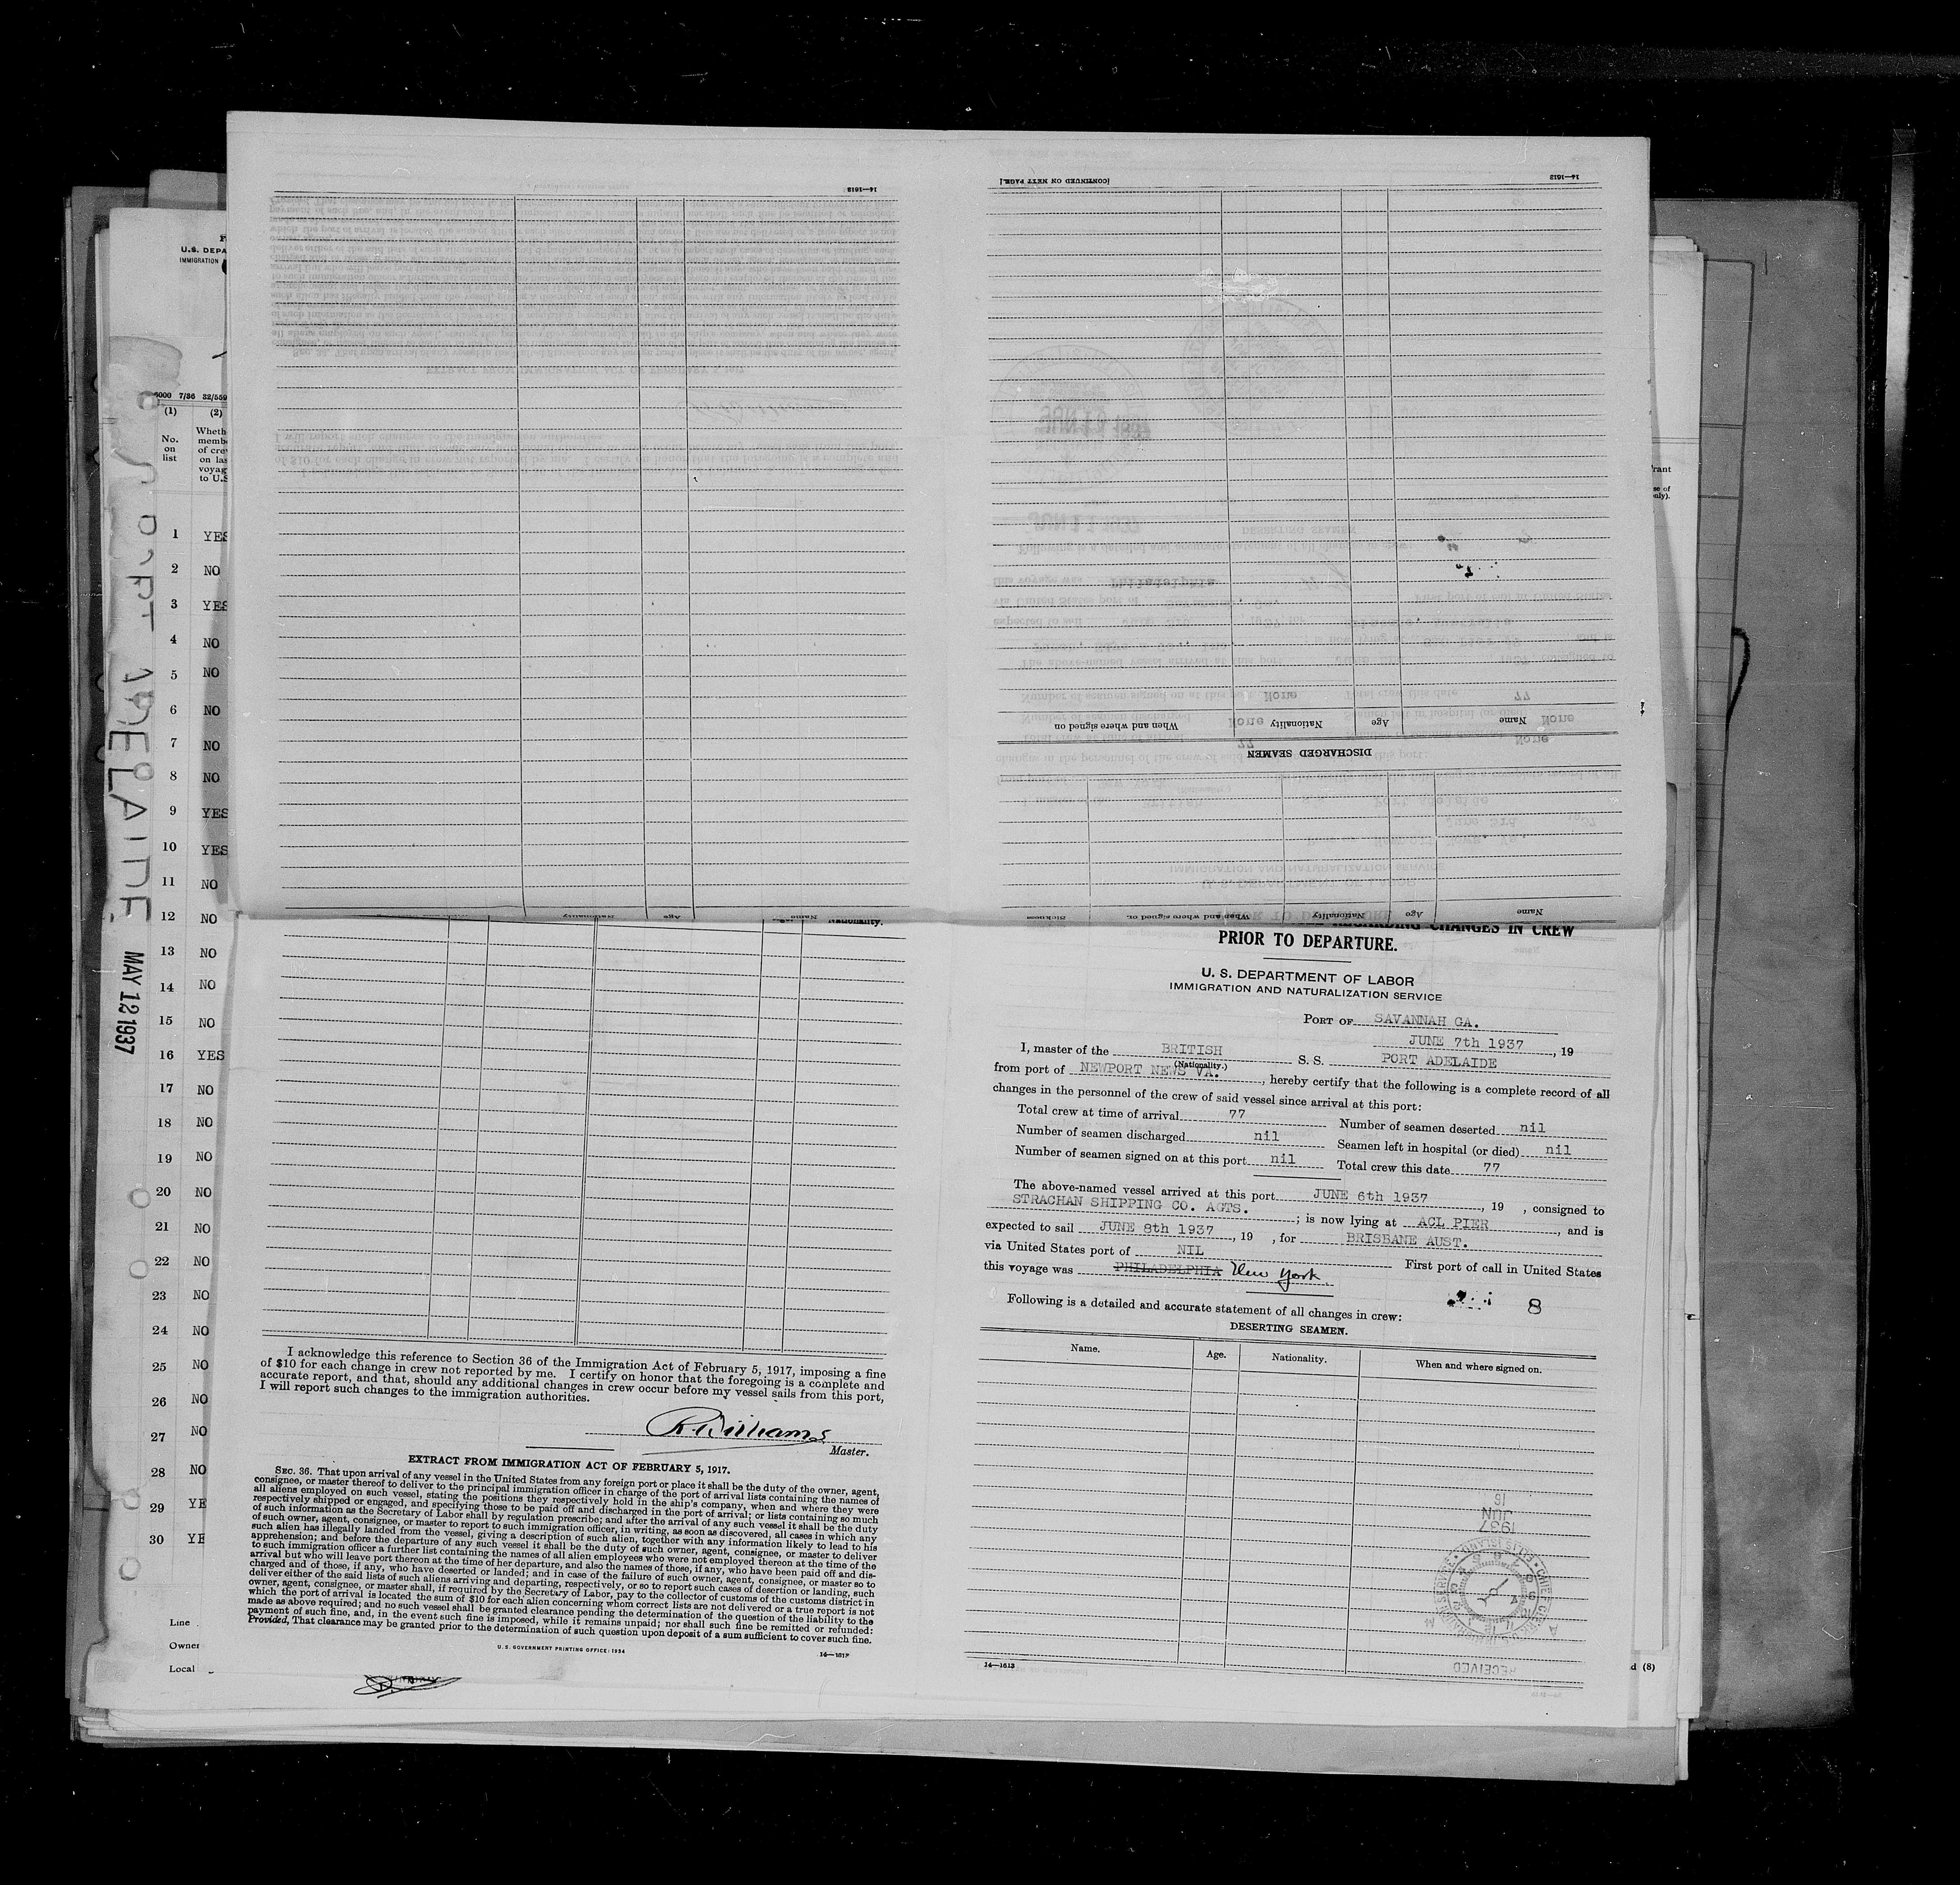 U.S. DEPA
IMMIGRATION
7/36 32/559
(1) (2)
No.
on
list
Wheth
memb
of crew
on las
voyag
to U.S
1 YES
2 NO
3 YES
4 NO
5 NO
6 NO
7 NO
8 NO
9 YES
10 YES
11 NO
12 NO
13 NO
14 NO
15 NO
16 YES
17 NO
18 NO
19 NO
20 NO
21 NO
22 NO
23 NO
24 NO
25 NO
26 NO
27 NO
28 NO
29 YE
30 YE
Line
Owner
Local
PORT ADELAIDE
MAY 12 1937
14—1613
[CONTINUED ON NEXT PAGE.]
14—1613
Name Age Nationality When and where signed on
DISCHARGED SEAMEN
Name Age Nationality When and where signed on. Sickness
Nationality.
CHANGES IN CREW
PRIOR TO DEPARTURE.
U. S. DEPARTMENT OF LABOR
IMMIGRATION AND NATURALIZATION SERVICE
PORT OF SAVANNAH GA.
JUNE 7th 1937, 19
I, master of the BRITISH S. S. PORT ADELAIDE
(Nationality.)
from port of NEWPORT NEWS VA., hereby certify that the following is a complete record of all
changes in the personnel of the crew of said vessel since arrival at this port:
Total crew at time of arrival 77 Number of seamen deserted nil
Number of seamen discharged nil Seamen left in hospital (or died) nil
Number of seamen signed on at this port nil Total crew this date 77
The above-named vessel arrived at this port JUNE 6th 1937, 19 , consigned to
STRACHAN SHIPPING CO. AGTS.; is now lying at ACL PIER, and is
expected to sail JUNE 8th 1937, 19 , for BRISBANE AUST.
via United States port of NIL First port of call in United States
this voyage was PHILADELPHIA New York.
8
Following is a detailed and accurate statement of all changes in crew:
DESERTING SEAMEN.
Name. Age. Nationality. When and where signed on.
1937
JUN
16
RECEIVED
14—1613
I acknowledge this reference to Section 36 of the Immigration Act of February 5, 1917, imposing a fine
of $10 for each change in crew not reported by me. I certify on honor that the foregoing is a complete and
accurate report, and that, should any additional changes in crew occur before my vessel sails from this port,
I will report such changes to the immigration authorities.
R. Williams
Master.
EXTRACT FROM IMMIGRATION ACT OF FEBRUARY 5, 1917.
SEC. 36. That upon arrival of any vessel in the United States from any foreign port or place it shall be the duty of the owner, agent,
consignee, or master thereof to deliver to the principal immigration officer in charge of the port of arrival lists containing the names of
all aliens employed on such vessel, stating the positions they respectively hold in the ship's company, when and where they were
respectively shipped or engaged, and specifying those to be paid off and discharged in the port of arrival; or lists containing so much
of such information as the Secretary of Labor shall by regulation prescribe; and after the arrival of any such vessel it shall be the duty
of such owner, agent, consignee, or master to report to such immigration officer, in writing, as soon as discovered, all cases in which any
such alien has illegally landed from the vessel, giving a description of such alien, together with any information likely to lead to his
apprehension; and before the departure of any such vessel it shall be the duty of such owner, agent, consignee, or master to deliver
to such immigration officer a further list containing the names of all alien employees who were not employed thereon at the time of the
arrival but who will leave port thereon at the time of her departure, and also the names of those, if any, who have been paid off and dis-
charged and of those, if any, who have deserted or landed; and in case of the failure of such owner, agent, consignee, or master so to
deliver either of the said lists of such aliens arriving and departing, respectively, or so to report such cases of desertion or landing, such
owner, agent, consignee, or master shall, if required by the Secretary of Labor, pay to the collector of customs of the customs district in
which the port of arrival is located the sum of $10 for each alien concerning whom correct lists are not delivered or a true report is not
made as above required; and no such vessel shall be granted clearance pending the determination of the question of the liability to the
payment of such fine, and, in the event such fine is imposed, while it remains unpaid; nor shall such fine be remitted or refunded:
Provided, That clearance may be granted prior to the determination of such question upon deposit of a sum sufficient to cover such fine.
U. S. GOVERNMENT PRINTING OFFICE: 1934
d (8)